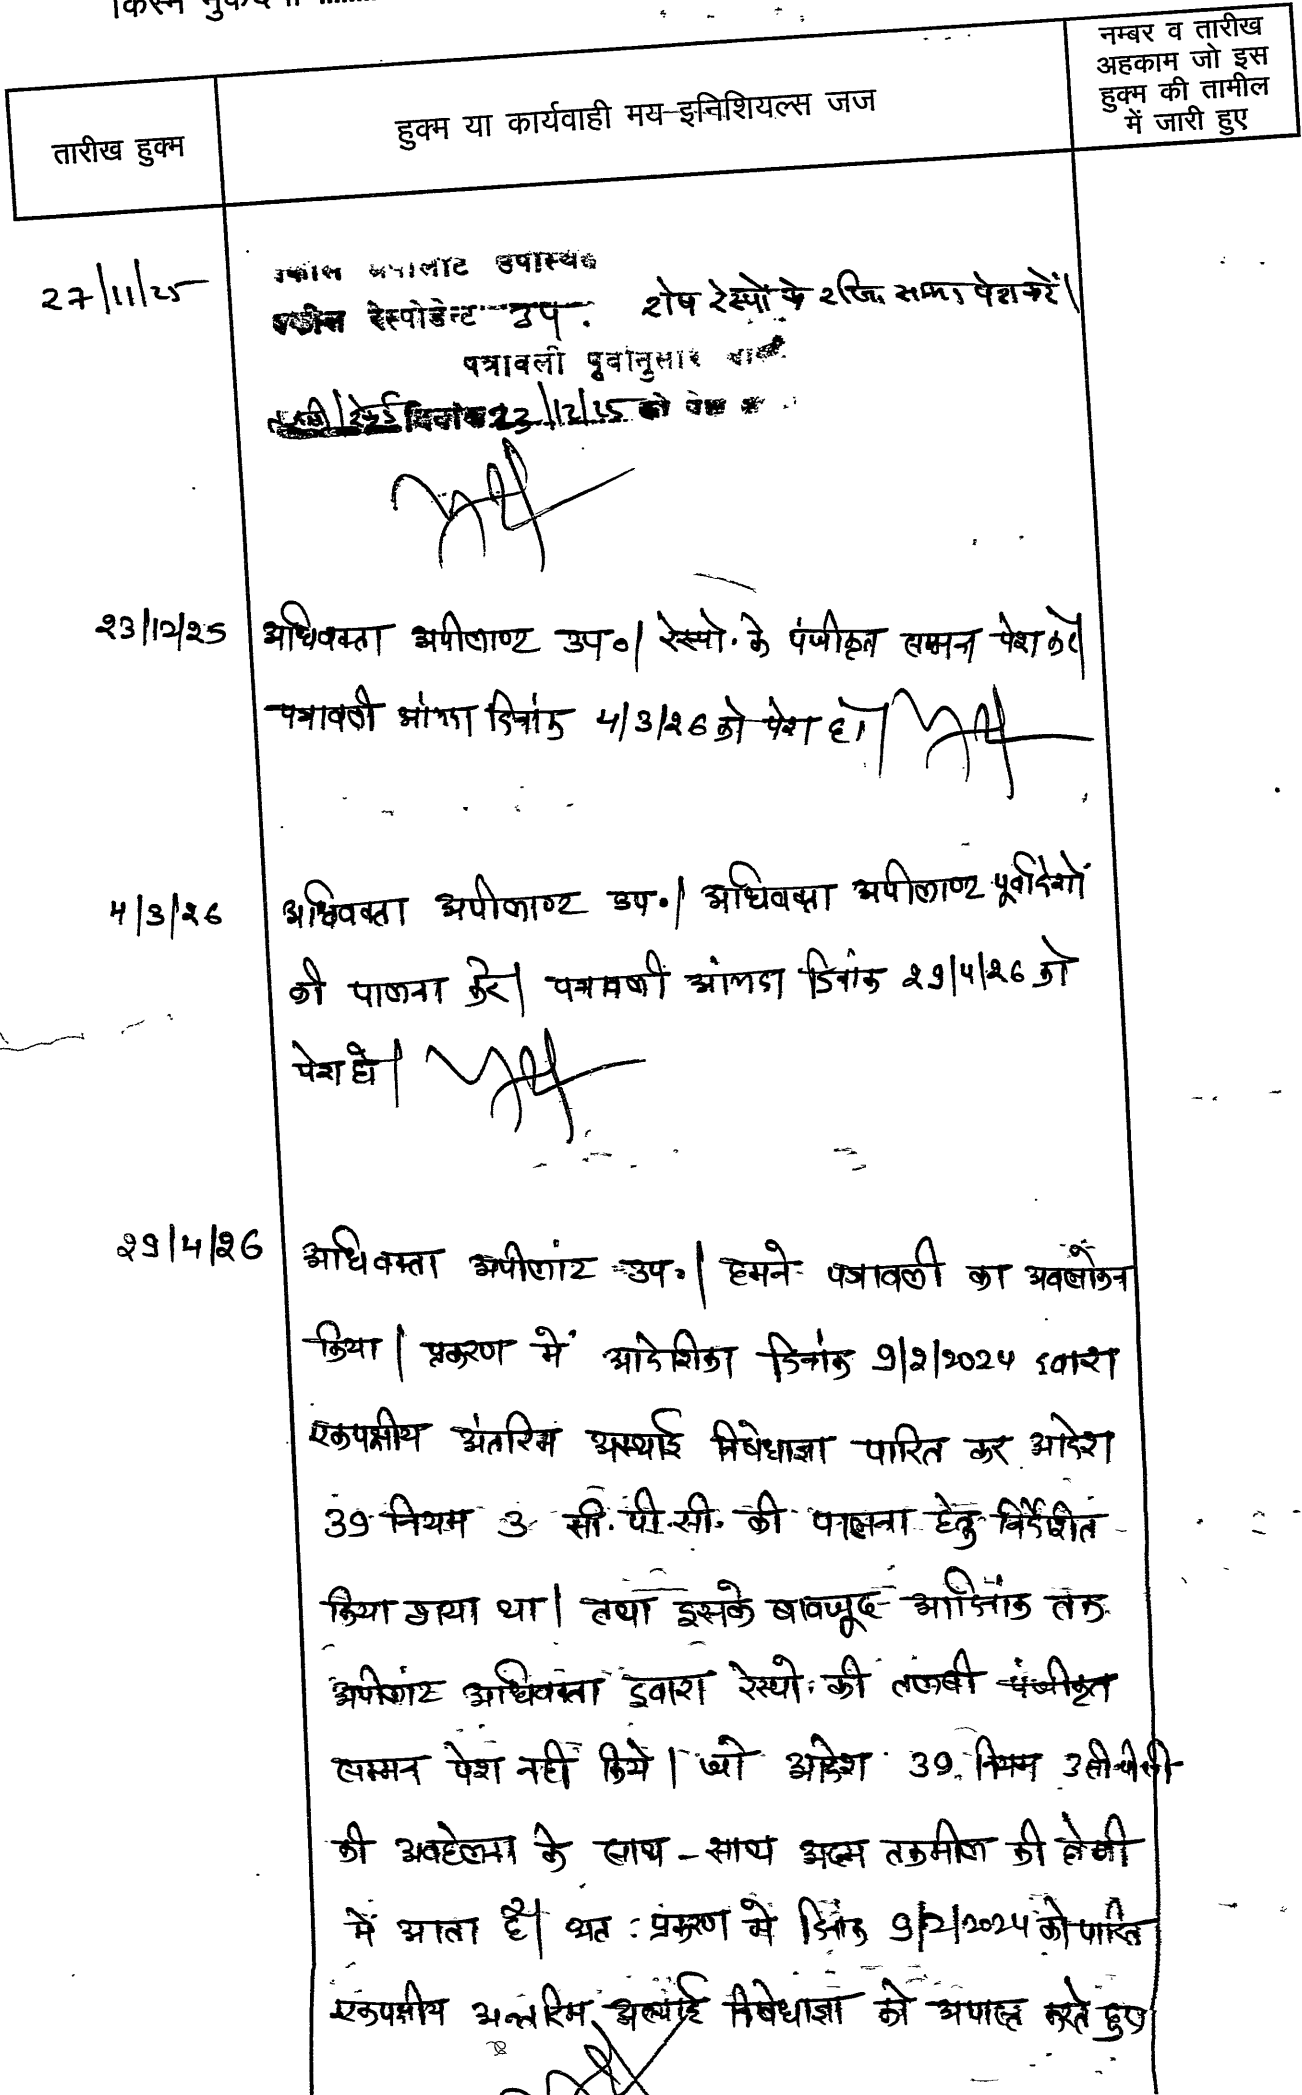 किस्म मुकदमा
तारीख हुक्म
हुक्म या कार्यवाही मय-इनिशियल्स जज
नम्बर व तारीख
अहकाम जो इस
हुक्म की तामील
में जारी हुए
27/11/25
वकील अपीलांट उपस्थित
वकील रेस्पोडेन्ट उप. शेष रेस्पों के रजि. सम्मन पेश करें।
पत्रावली पूर्वानुसार वास्ते
तलबी/रेकर्ड दिनांक 23/12/25 को पेश हो
23/12/25
अधिवक्ता अपीलाण्ट उप०। रेस्पो. के पंजीकृत सम्मन पेश करें।
पत्रावली आंइन्दा दिनांक 4/3/26 को पेश हो।
4/3/26
अधिवक्ता अपीलाण्ट उप.। अधिवक्ता अपीलाण्ट पूर्वादेशों
की पालना करें। पत्रावली आंइन्दा दिनांक 29/4/26 को
पेश हो।
29/4/26
अधिवक्ता अपीलांट उप.। हमने पत्रावली का अवलोकन
किया। प्रकरण में आदेशिका दिनांक 9/2/2024 द्वारा
एकपक्षीय अंतरिम अस्थाई निषेधाज्ञा पारित कर आदेश
39 नियम 3 सी.पी.सी. की पालना हेतु निर्देशित
किया गया था। तथा इसके बावजूद आदिनांक तक
अपीलांट अधिवक्ता द्वारा रेस्पो. की तलबी पंजीकृत
सम्मन पेश नहीं किये। जो आदेश 39 नियम 3 सी.पी.सी
की अवहेलना के साथ-साथ अदम तकमील की श्रेणी
में आता है। अत: प्रकरण में दिनांक 9/2/2024 को पारित
एकपक्षीय अन्तरिम अस्थाई निषेधाज्ञा को अपास्त करते हुए